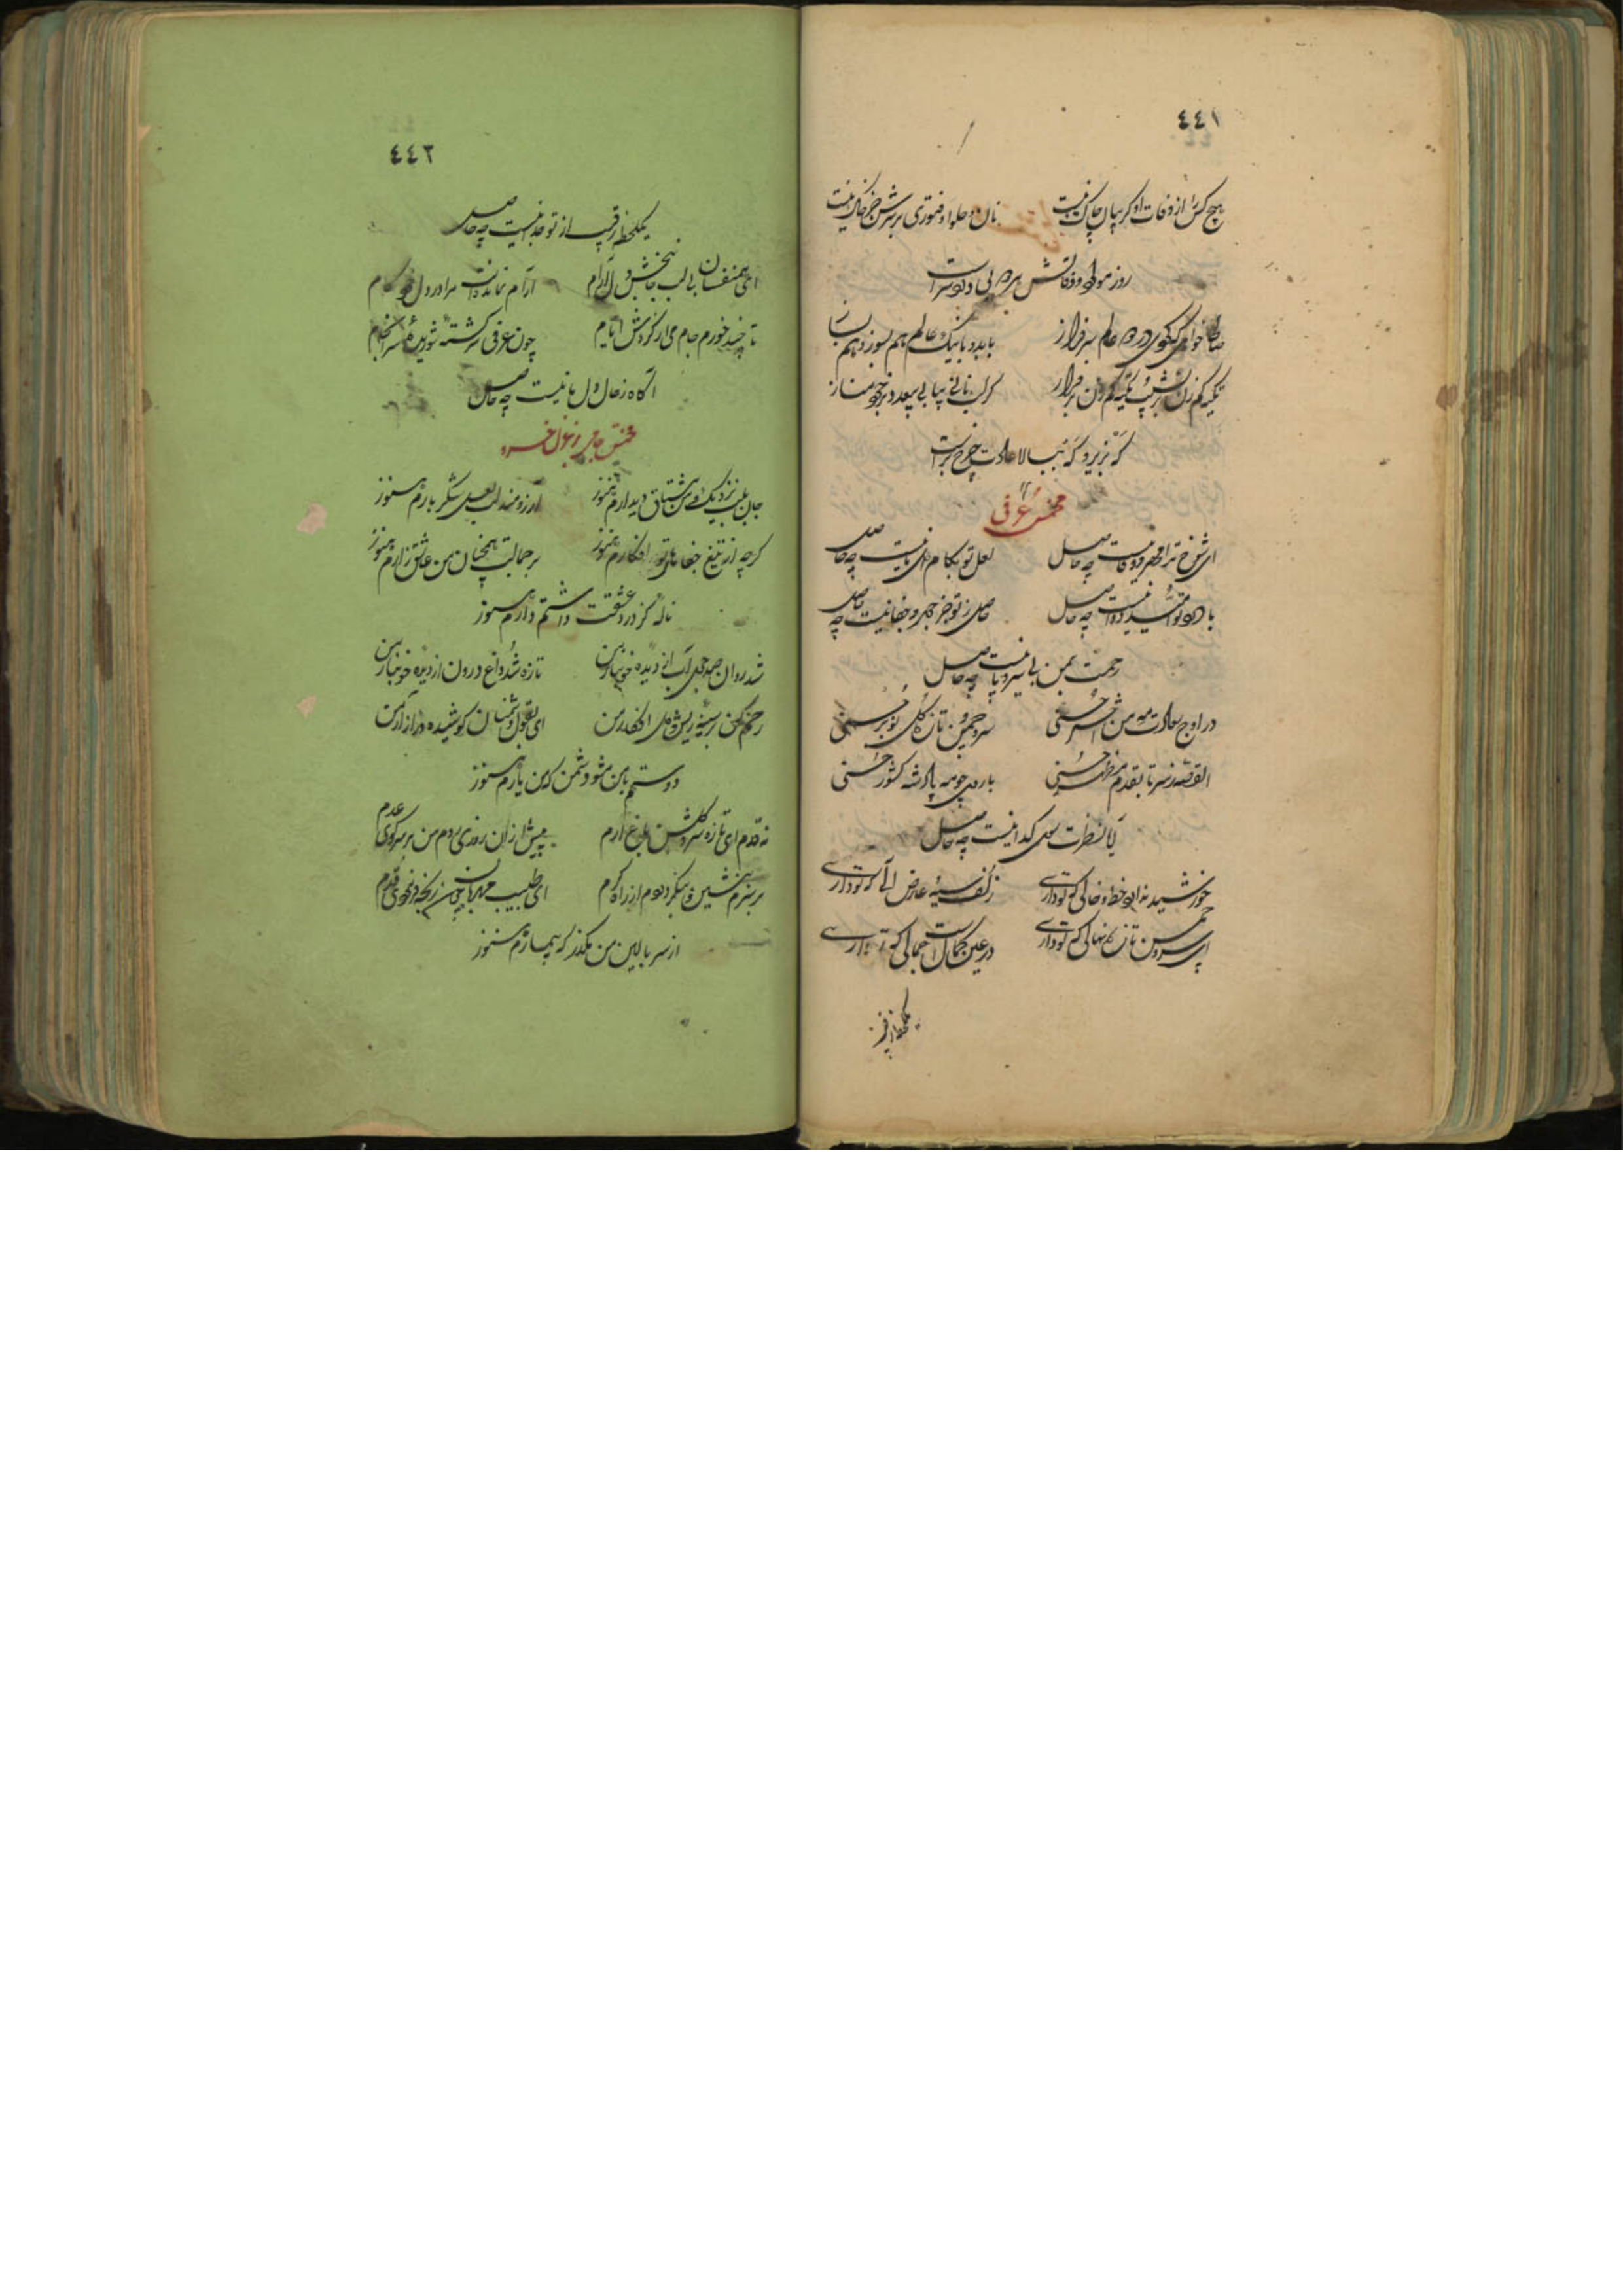 ٤٤١
هیچ کس را از وفات او کریبان چاک نیست
نان و حلوا و فتوری بر سرش جز خاک نیست
روز مولود و وفاتش
عالم سرفراز
بابد و با نیک عالم هم بسوز و هم بساز
تکیه کم زن
که بزیر و که ببالا عادت چرخ
مخمس عرفی
ای شوخ ترا مهر و وفا نیست چه حاصل
لعل تو بکام دل ما نیست چه حاصل
با درد تو امید دوا نیست چه حاصل
حاصل ز تو جز جور و جفا نیست چه حاصل
رحمت بمن بی سر و پا نیست چه حاصل
در اوج سعادت مه من اختر حسنی
سرو چمن و تازه کل نوبر حسنی
القصه ز سر تا بقدم مظهر حسنی
با روی چو مه پادشه کشور حسنی
اما نظرت سوی کدا نیست چه حاصل
خورشید ندارد خط و خالی که تو داری
زلف سیه و عارض آلی که تو داری
ای سرو چمن تازه نهالی که تو داری
در عین کمال است جمالی که تو داری
یکلحظه رقیب
٤٤٢
یکلحظه رقیب از تو جدا نیست چه حاصل
ای همنفسان بی لب جانبخش دلارام
آرام نمانده است مرا در دل
تا چند خورم جام می از کردش ایام
چون عرفی سرکشته شوریده سرانجام
آکاه ز حال دل ما نیست چه حاصل
مخمس جامی بر غزل خسرو
جان بلب نزدیک و من مشتاق دیدارم هنوز
آرزومند لب لعل شکر بارم هنوز
کرچه از تیغ جفاهای تو افکارم هنوز
بر جمالت همچنان من عاشق زارم هنوز
ناله کز درد عشقت داشتم دارم هنوز
شد روان صد جوی آب از دیده خونبار من
تازه شد داغ درون از دیده خونبار من
رحم کن بر سینه ریش و دل افکار من
ای بقول دشمنان کوشیده در آزار من
دوستم با من مشو دشمن که من یارم هنوز
نه قدم ای تازه سرو کلشن باغ ارم
پیش از آن روزی روم من بر سر کوی عدم
بر سرم بنشین و بنکر دردم از راه کرم
ای طبیب مهربان چون رنجه فرمودی قدم
از سر بالین من مکذر که بیمارم هنوز